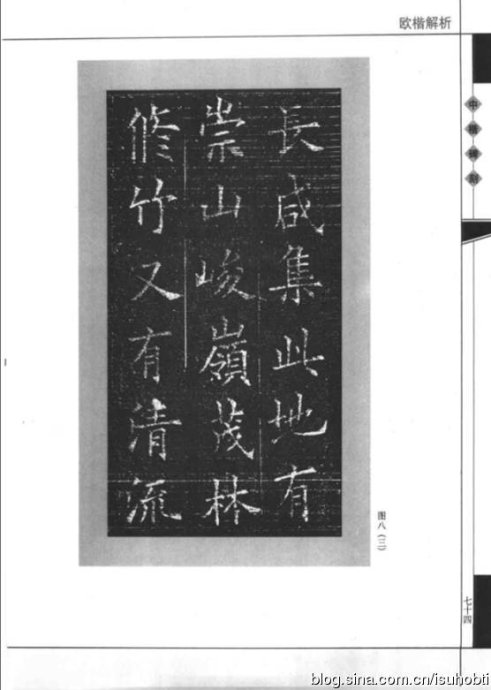 欧楷解析
中楷碑刻
長咸集此地有
崇山峻嶺茂林
修竹又有清流
图八（三）
七十四
blog.sina.com.cn/isuhobti